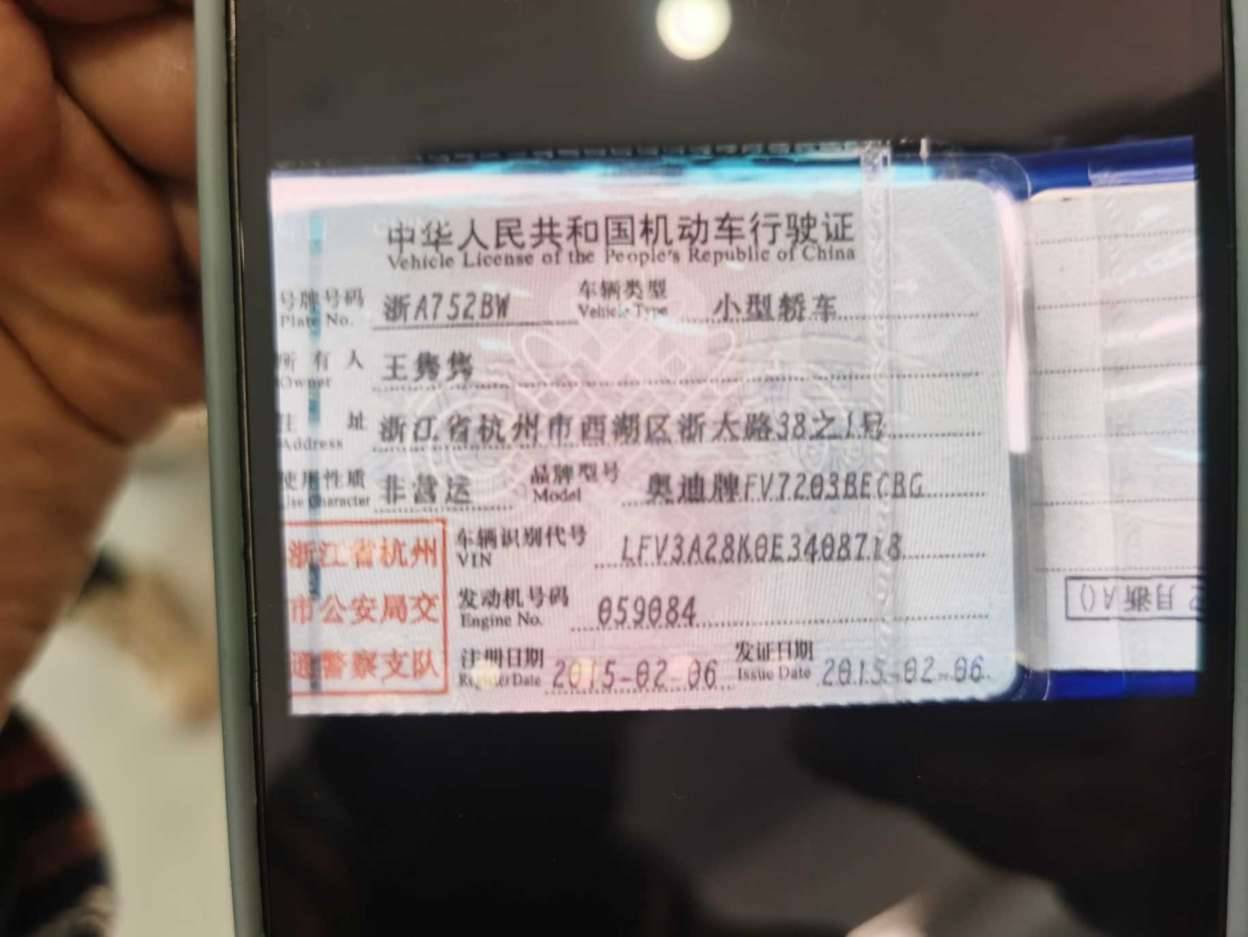 中华人民共和国机动车行驶证
Vehicle License of the People's Republic of China
号牌号码 浙A752BW 车辆类型 小型轿车
Plate No. Vehicle Type
所有人 王隽隽
Owner
住址 浙江省杭州市西湖区浙大路38之1号
Address
使用性质 非营运 品牌型号 奥迪牌FV7203BECBG
Use Character Model
浙江省杭州 车辆识别代号 LFV3A28K0E3408718
VIN
市公安局交 发动机号码 059084
Engine No.
通警察支队 注册日期 2015-02-06 发证日期 2015-02-06
Register Date Issue Date